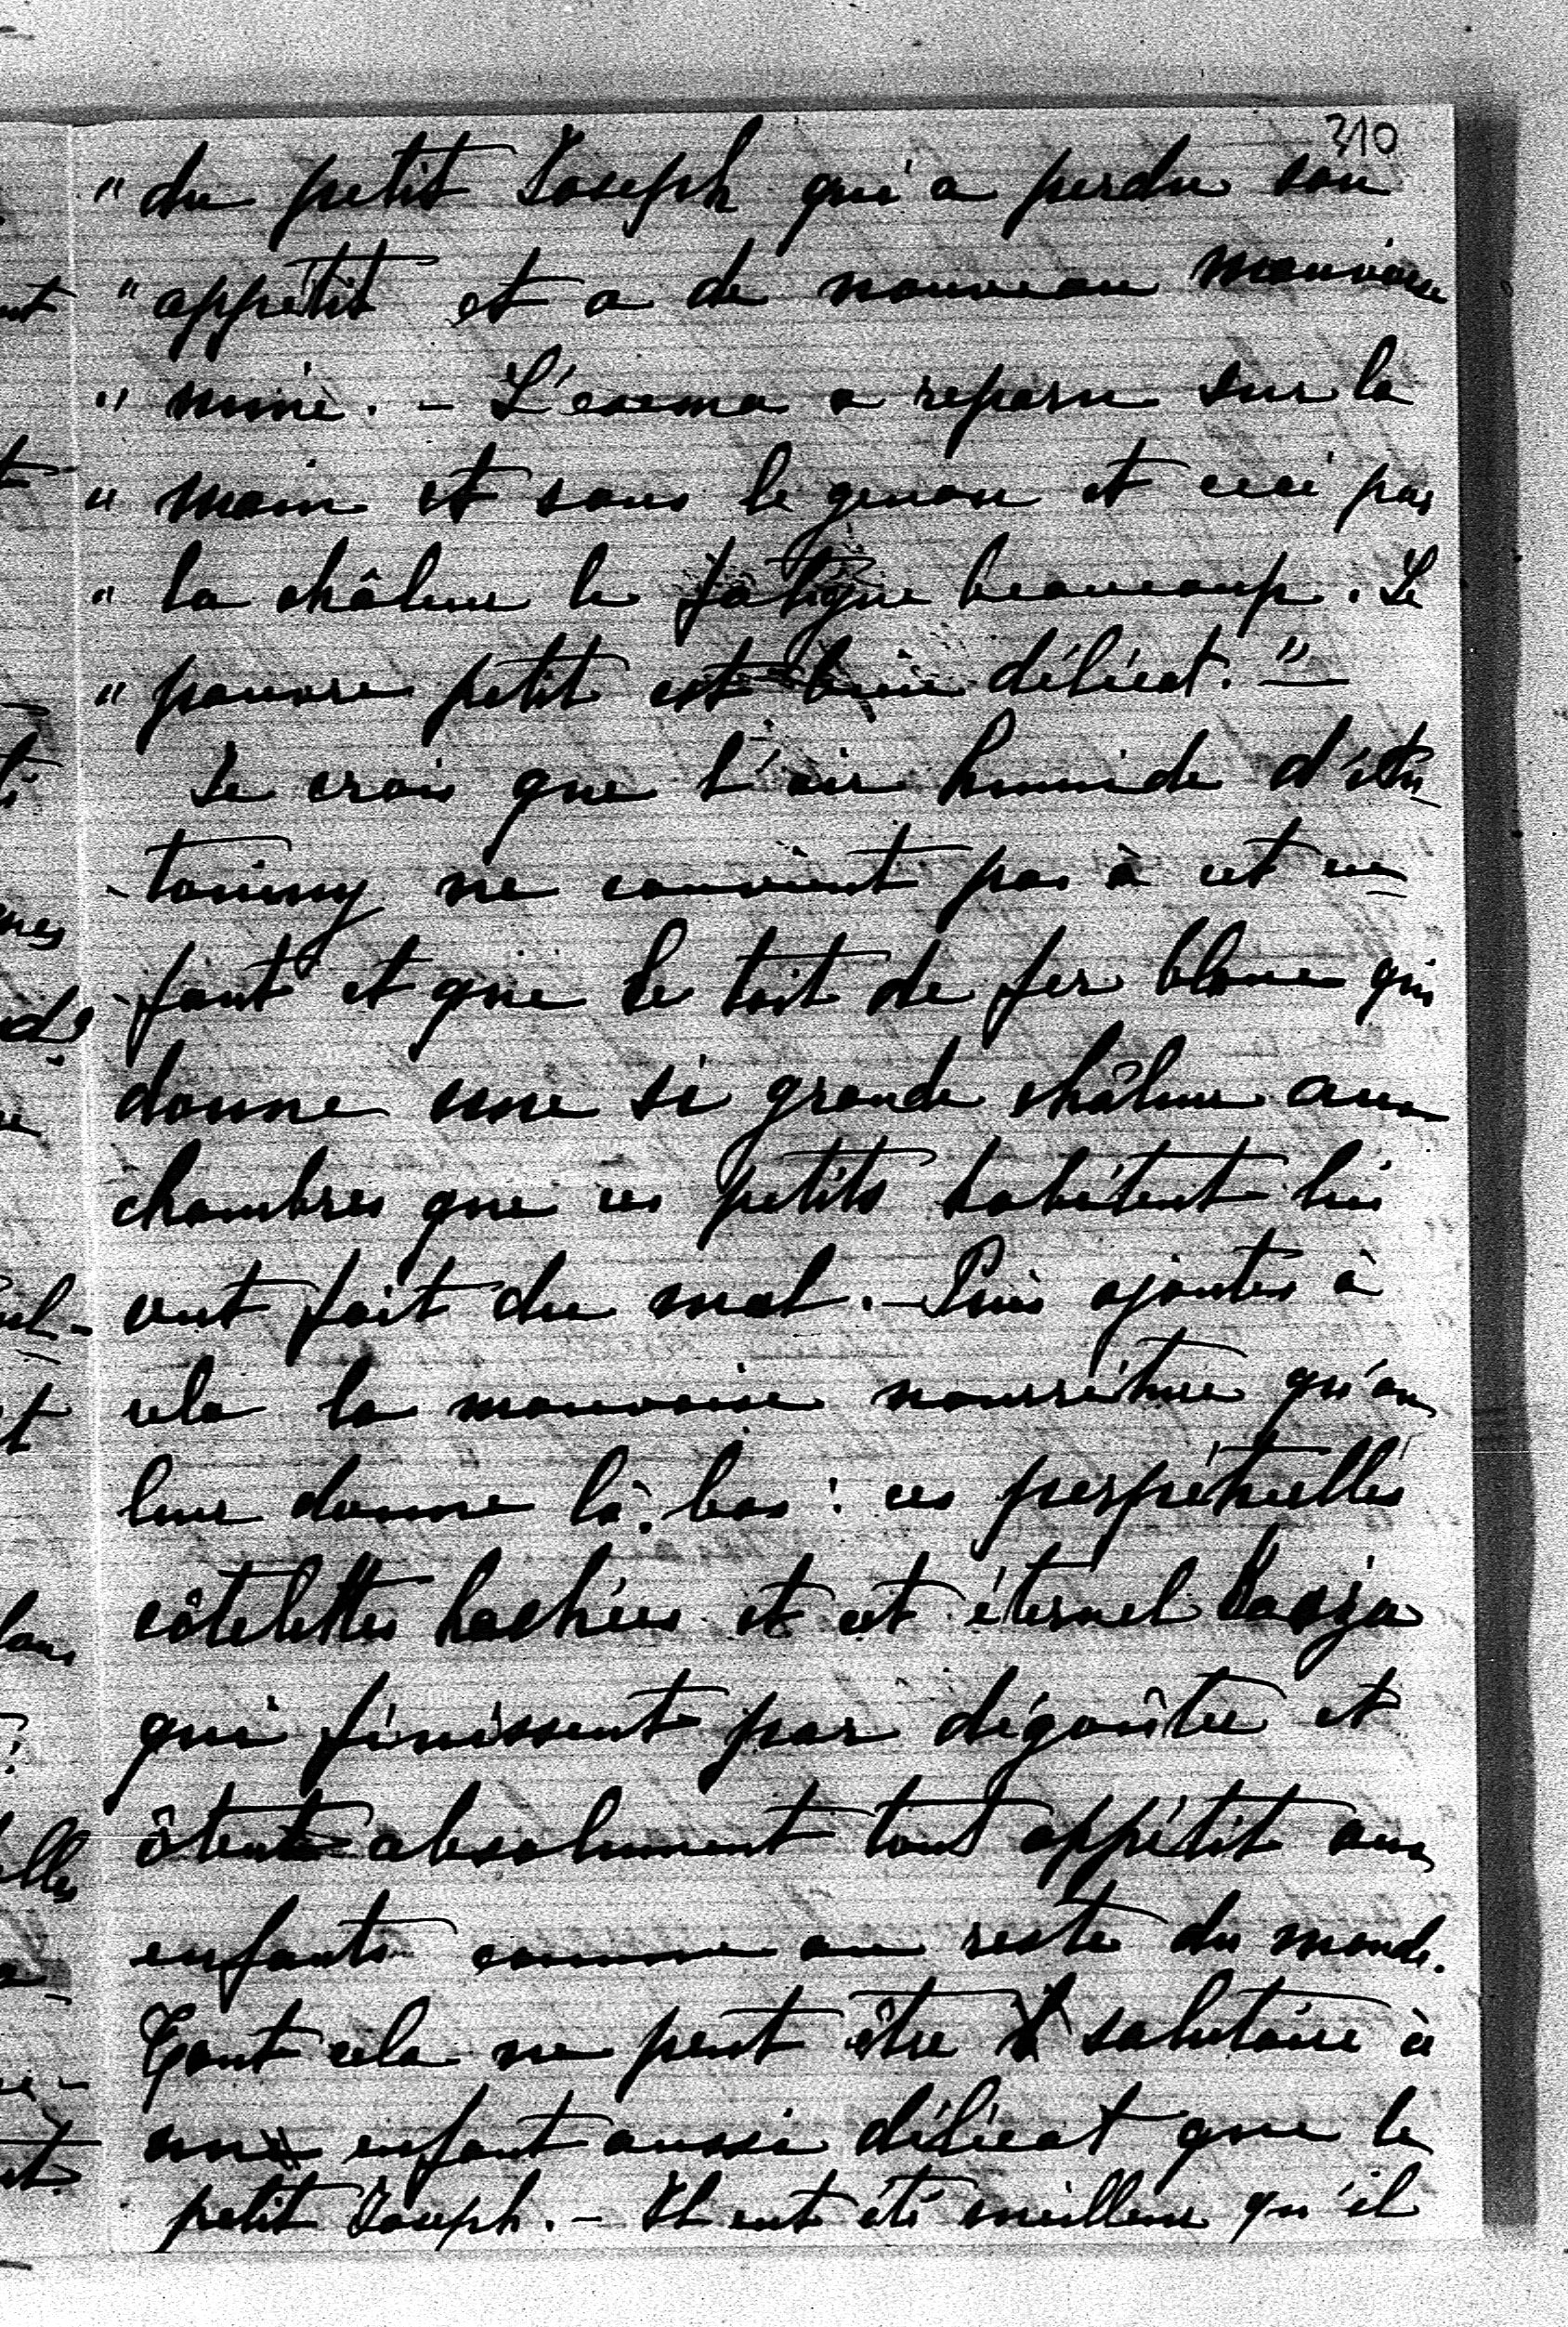 310
" du petit Joseph qui a perdu son
" appétit et a de nouveau mauvaise
" mine. – L'exema a reparu sur la
" main et sous le genou et ceci par
" la châleur le fatigue beaucoup. Le
" pauvre petit est bien délicat." –
Je crois que l'air humide d'An-
-toniny ne convient pas à cet en-
-fant et que le toit de fer blanc qui
donne une si grande châleur aux
chambres que ces petits habitent lui
ont fait du mal. – Puis ajoutez à
cela la mauvaise nourriture qu'on
leur donne là-bas : ces perpétuelles
côtelettes hachées et cet éternel
qui finissent par dégoûter et
ôtent absolument tout appétit aux
enfants comme au reste du monde.
Tout cela ne peut être salutaire à
un enfant aussi délicat que le
petit Joseph. – Il eut été meilleur qu'il